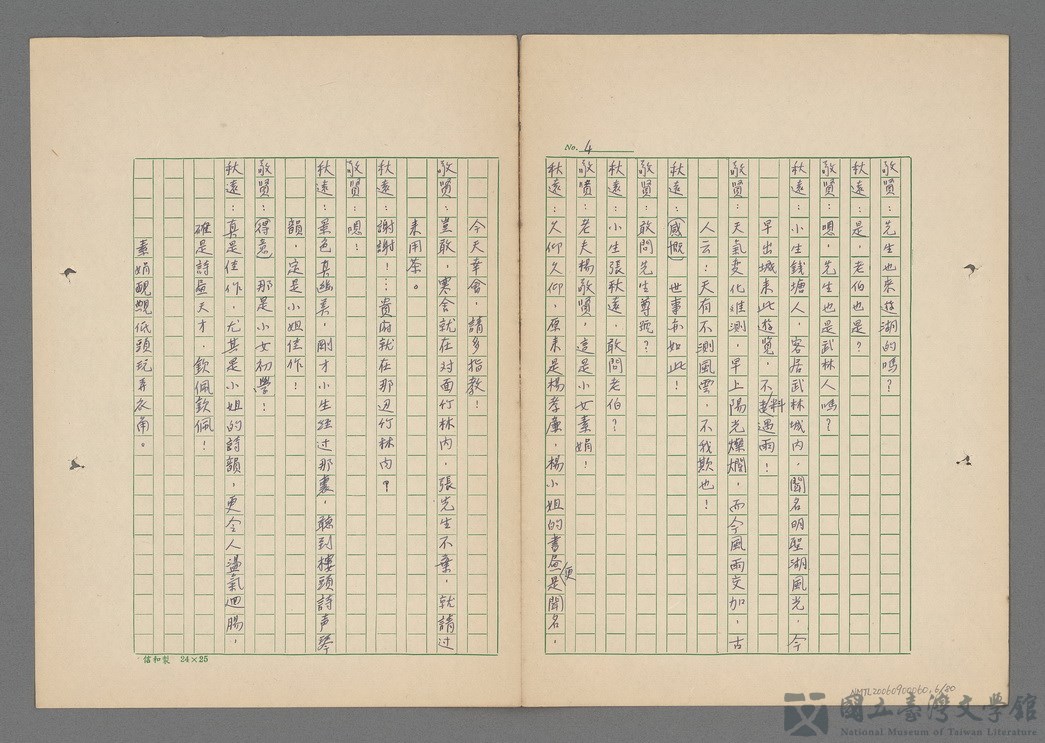 No. 4
敬賢：先生也來遊湖的嗎？
秋遠：是，老伯也是？
敬賢：嗯，先生也是武林人嗎？
秋遠：小生錢塘人，客居武林城內，聞名明聖湖風光，今
早出城來此遊覽，不料遇雨！
敬賢：天氣变化難測，早上陽光燦爛，而今風雨交加，古
人云：天有不測風雲，不我欺也！
秋遠：（感慨）世事亦如此！
敬賢：敢問先生尊號？
秋遠：小生張秋遠，敢問老伯？
敬賢：老夫楊敬賢，這是小女素娟！
秋遠：久仰久仰，原來是楊孝廉，楊小姐的書画更是聞名，
今天幸會，請多指教！
敬賢：豈敢，寒舍就在对面竹林內，張先生不棄，就請过
來用茶。
秋遠：謝謝！…貴府就在那边竹林內？
敬賢：嗯！
秋遠：景色真幽美，剛才小生經过那裏，聽到樓頭詩声琴
韻，定是小姐佳作！
敬賢：（得意）那是小女初學！
秋遠：真是佳作，尤其是小姐的詩韻，更令人盪氣迴腸，
確是詩画天才，欽佩欽佩！
素娟靦覥低頭玩弄衣角。
信和製 24×25
NMTL20060900060, 6/80
國立臺灣文學館
National Museum of Taiwan Literature